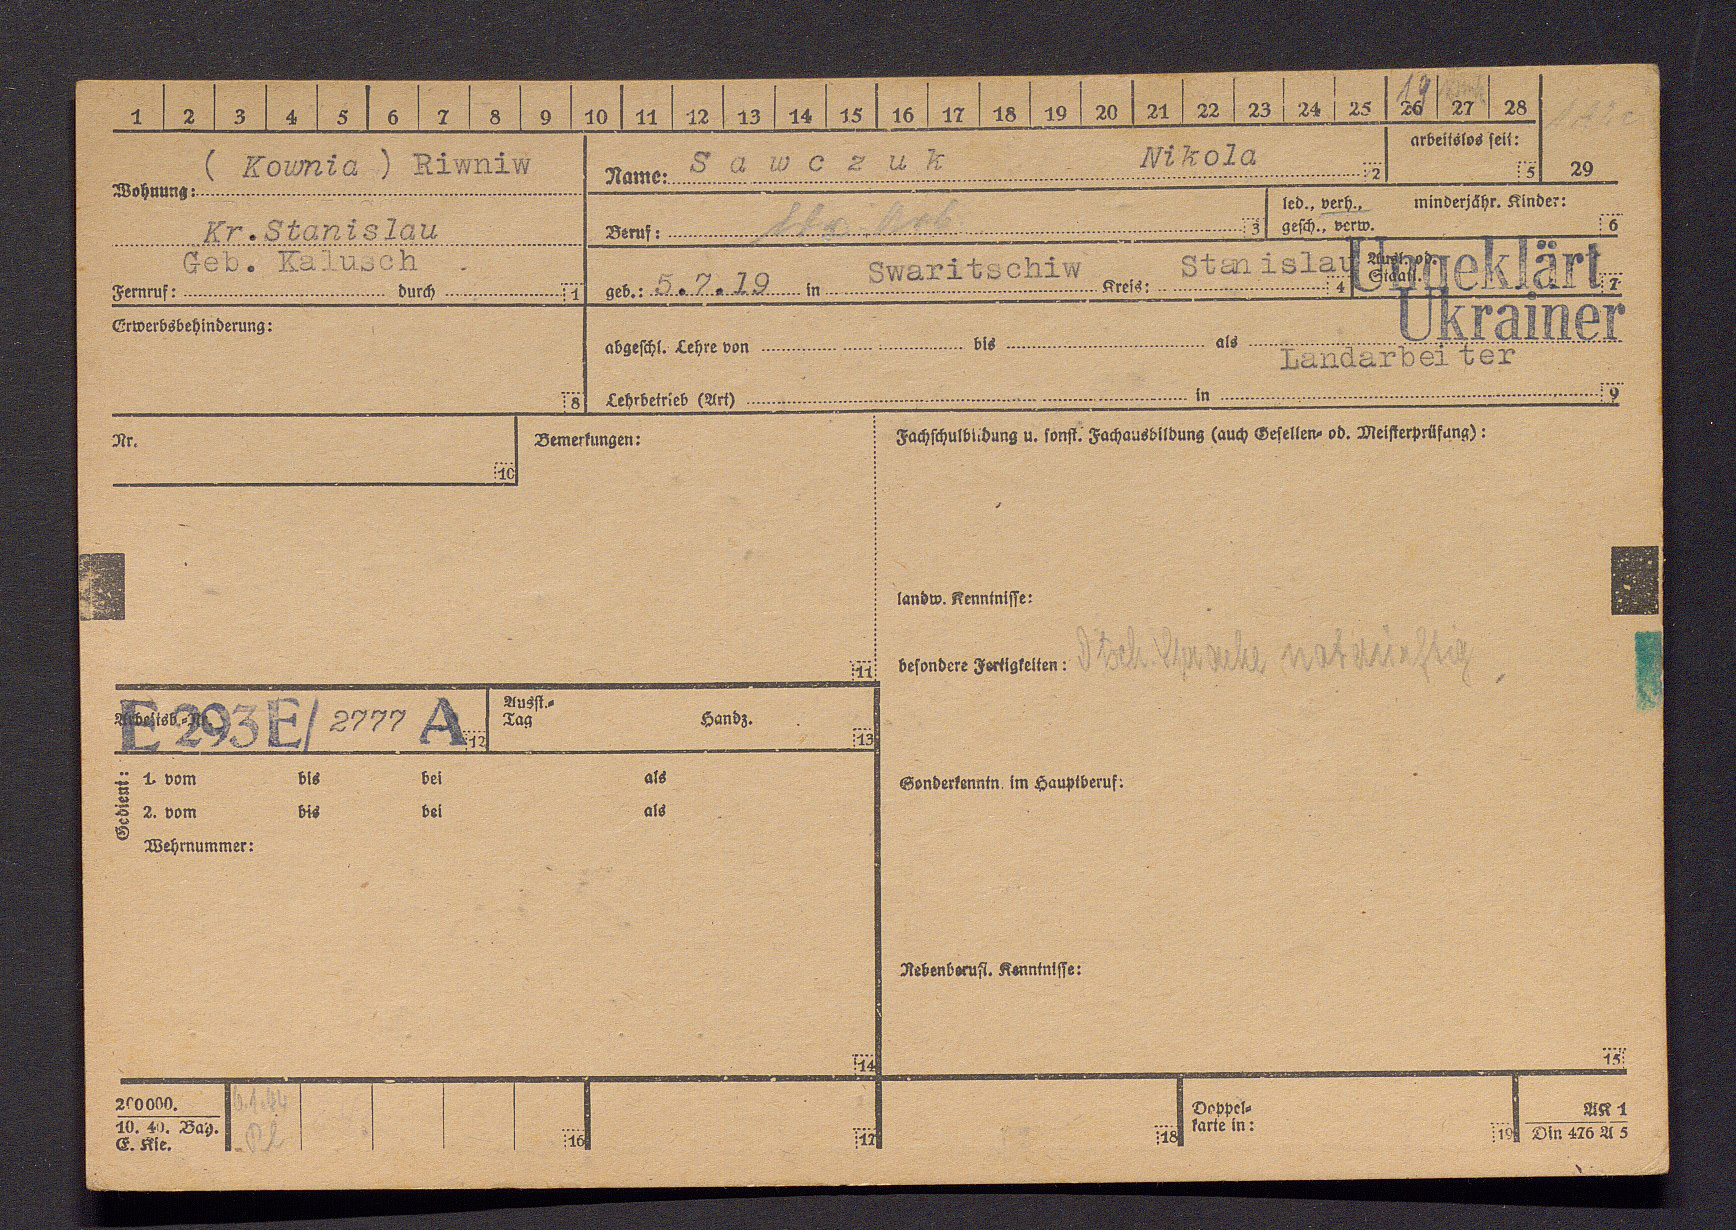 1 2 3 4 5 6 7 8 9 10 11 12 13 14 15 16 17 18 19 20 21 22 23 24 25 26 27 28
19
( Kownia ) Riwniw
Wohnung:
Kr.Stanislau
Geb. Kalusch
Fernruf: durch 1
Name: Sawczuk Nikola 2
arbeitslos seit: 5
29
Beruf: 3
led., verh., minderjähr. Kinder:
gesch., verw. 6
geb.: 5.7.19 in Swaritschiw Kreis: Stanislau 4
Ausl. od.
Staatl. 7
Ungeklärt
Ukrainer
Erwerbsbehinderung:
8
abgeschl. Lehre von bis als
Landarbeiter
Lehrbetrieb (Art) in 9
Nr.
10
Bemerkungen:
11
Fachschulbildung u. sonst. Fachausbildung (auch Gesellen- od. Meisterprüfung):
landw. Kenntnisse:
besondere Fertigkeiten: Dtsch. Sprache notdürftig
Arbeitsb.-Nr.
E 293E/ 2777 A 12
Ausst.-
Tag Handz. 13
Gedient:
1. vom bis bei als
2. vom bis bei als
Wehrnummer:
14
Sonderkenntn. im Hauptberuf:
Nebenberufl. Kenntnisse:
15
200000.
10. 40. Bay.
E. Kie.
16
17
18
Doppel-
karte in: 19
AK 1
Din 476 A 5